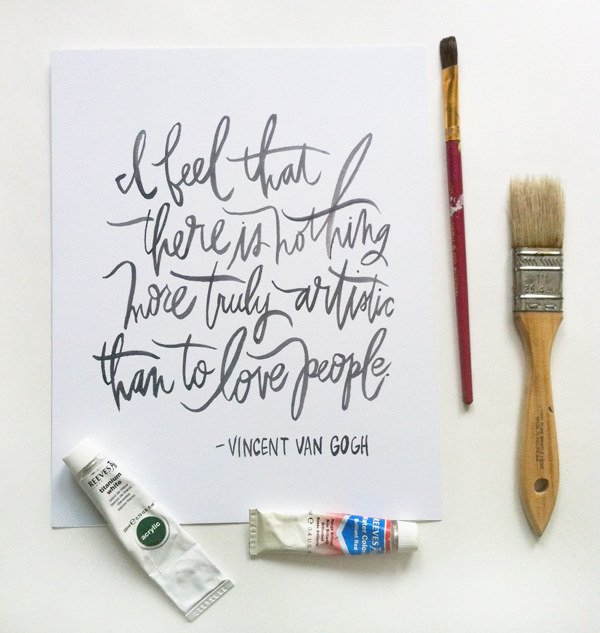 I feel that
there is nothing
more truly artistic
than to love people.
-VINCENT VAN GOGH
REEVES
titanium
white
acrylic
REEVES
ter Colo